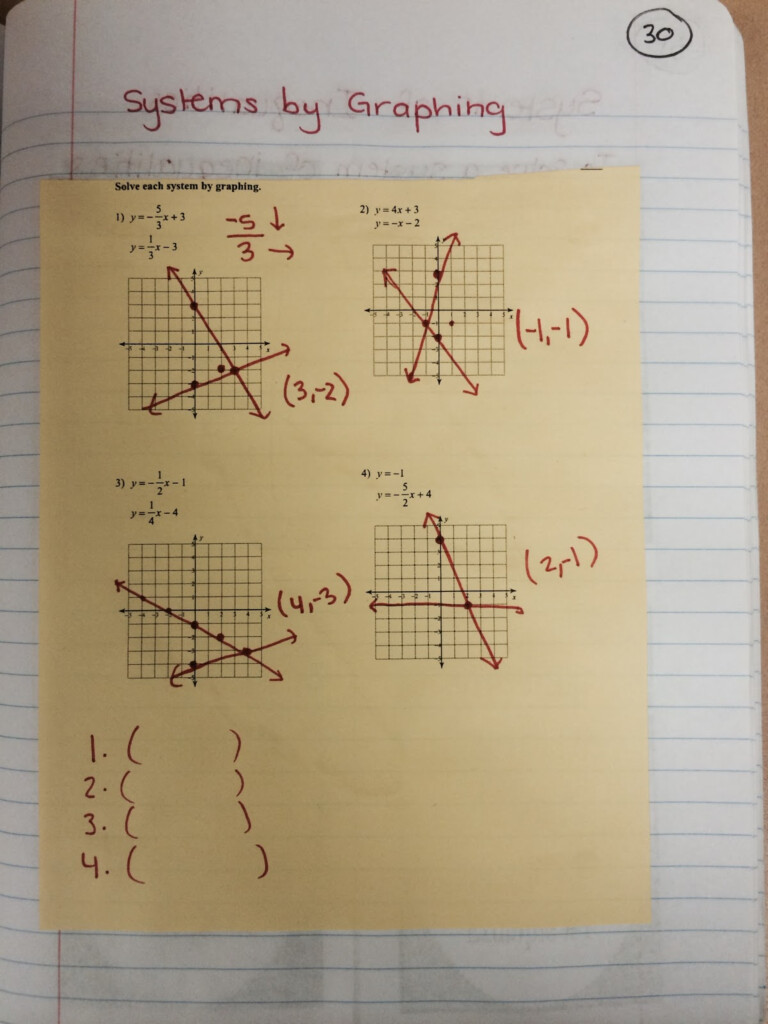 30
Systems by Graphing
Solve each system by graphing.
1) y = -5/3x + 3
y = 1/3x - 3
-5 ↓
3 →
(3,-2)
2) y = 4x + 3
y = -x - 2
(-1,-1)
3) y = -1/2x - 1
y = 1/4x - 4
(4,-3)
4) y = -1
y = -5/2x + 4
(2,-1)
1. ( )
2. ( )
3. ( )
4. ( )